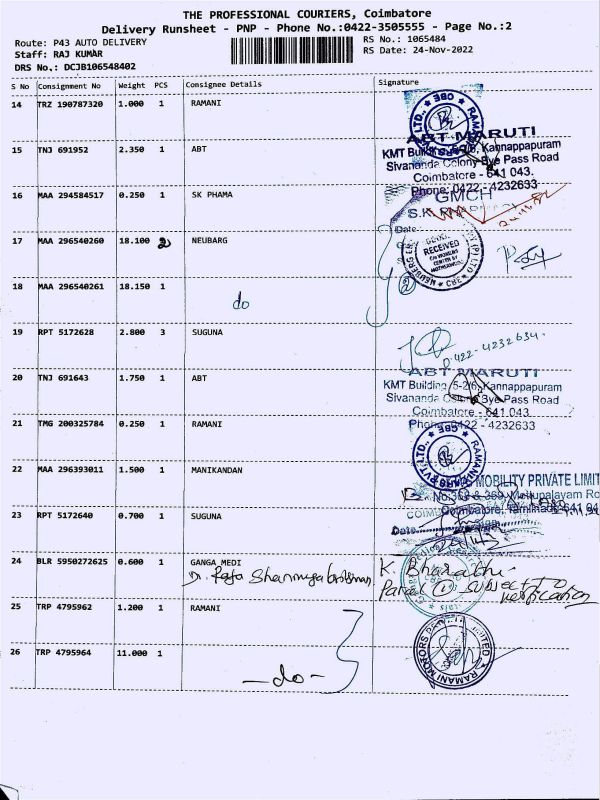 THE PROFESSIONAL COURIERS, Coimbatore
Delivery Runsheet - PNP - Phone No.:0422-3505555 - Page No.:2
Route: P43 AUTO DELIVERY
RS No.: 1065484
Staff: RAJ KUMAR
RS Date: 24-Nov-2022
DRS No.: DCJB106548402
S No Consignment No Weight PCS Consignee Details Signature
14 TRZ 190787320 1.000 1 RAMANI
CBE
ABT MARUTI
15 TNJ 691952 2.350 1 ABT
KMT Building, 5-2/6, Kannappapuram
Sivananda Colony Bye Pass Road
Coimbatore - 641 043.
Phone: 0422 - 4232633
16 MAA 294584517 0.250 1 SK PHAMA
GMCH
Date
17 MAA 296540260 18.100 2 NEUBARG
RECEIVED
18 MAA 296540261 18.150 1
do
19 RPT 5172628 2.800 3 SUGUNA
0422-4232634.
20 TNJ 691643 1.750 1 ABT
ABT MARUTI
KMT Building, 5-2/6, Kannappapuram
Sivananda Colony Bye Pass Road
Coimbatore - 641 043.
Phone: 0422 - 4232633
21 TMG 200325784 0.250 1 RAMANI
CBE
22 MAA 296393011 1.500 1 MANIKANDAN
MOBILITY PRIVATE LIMIT
No:368 & 369, Mettupalayam Ro
Coimbatore, Tamilnadu 641 04
23 RPT 5172640 0.700 1 SUGUNA
Date
24 BLR 5950272625 0.600 1 GANGA MEDI
K. Bharathi
Parcel 1 subject to
verification
25 TRP 4795962 1.200 1 RAMANI
RAMANI MOTORS PRIVATE LIMITED
26 TRP 4795964 11.000 1
- do -